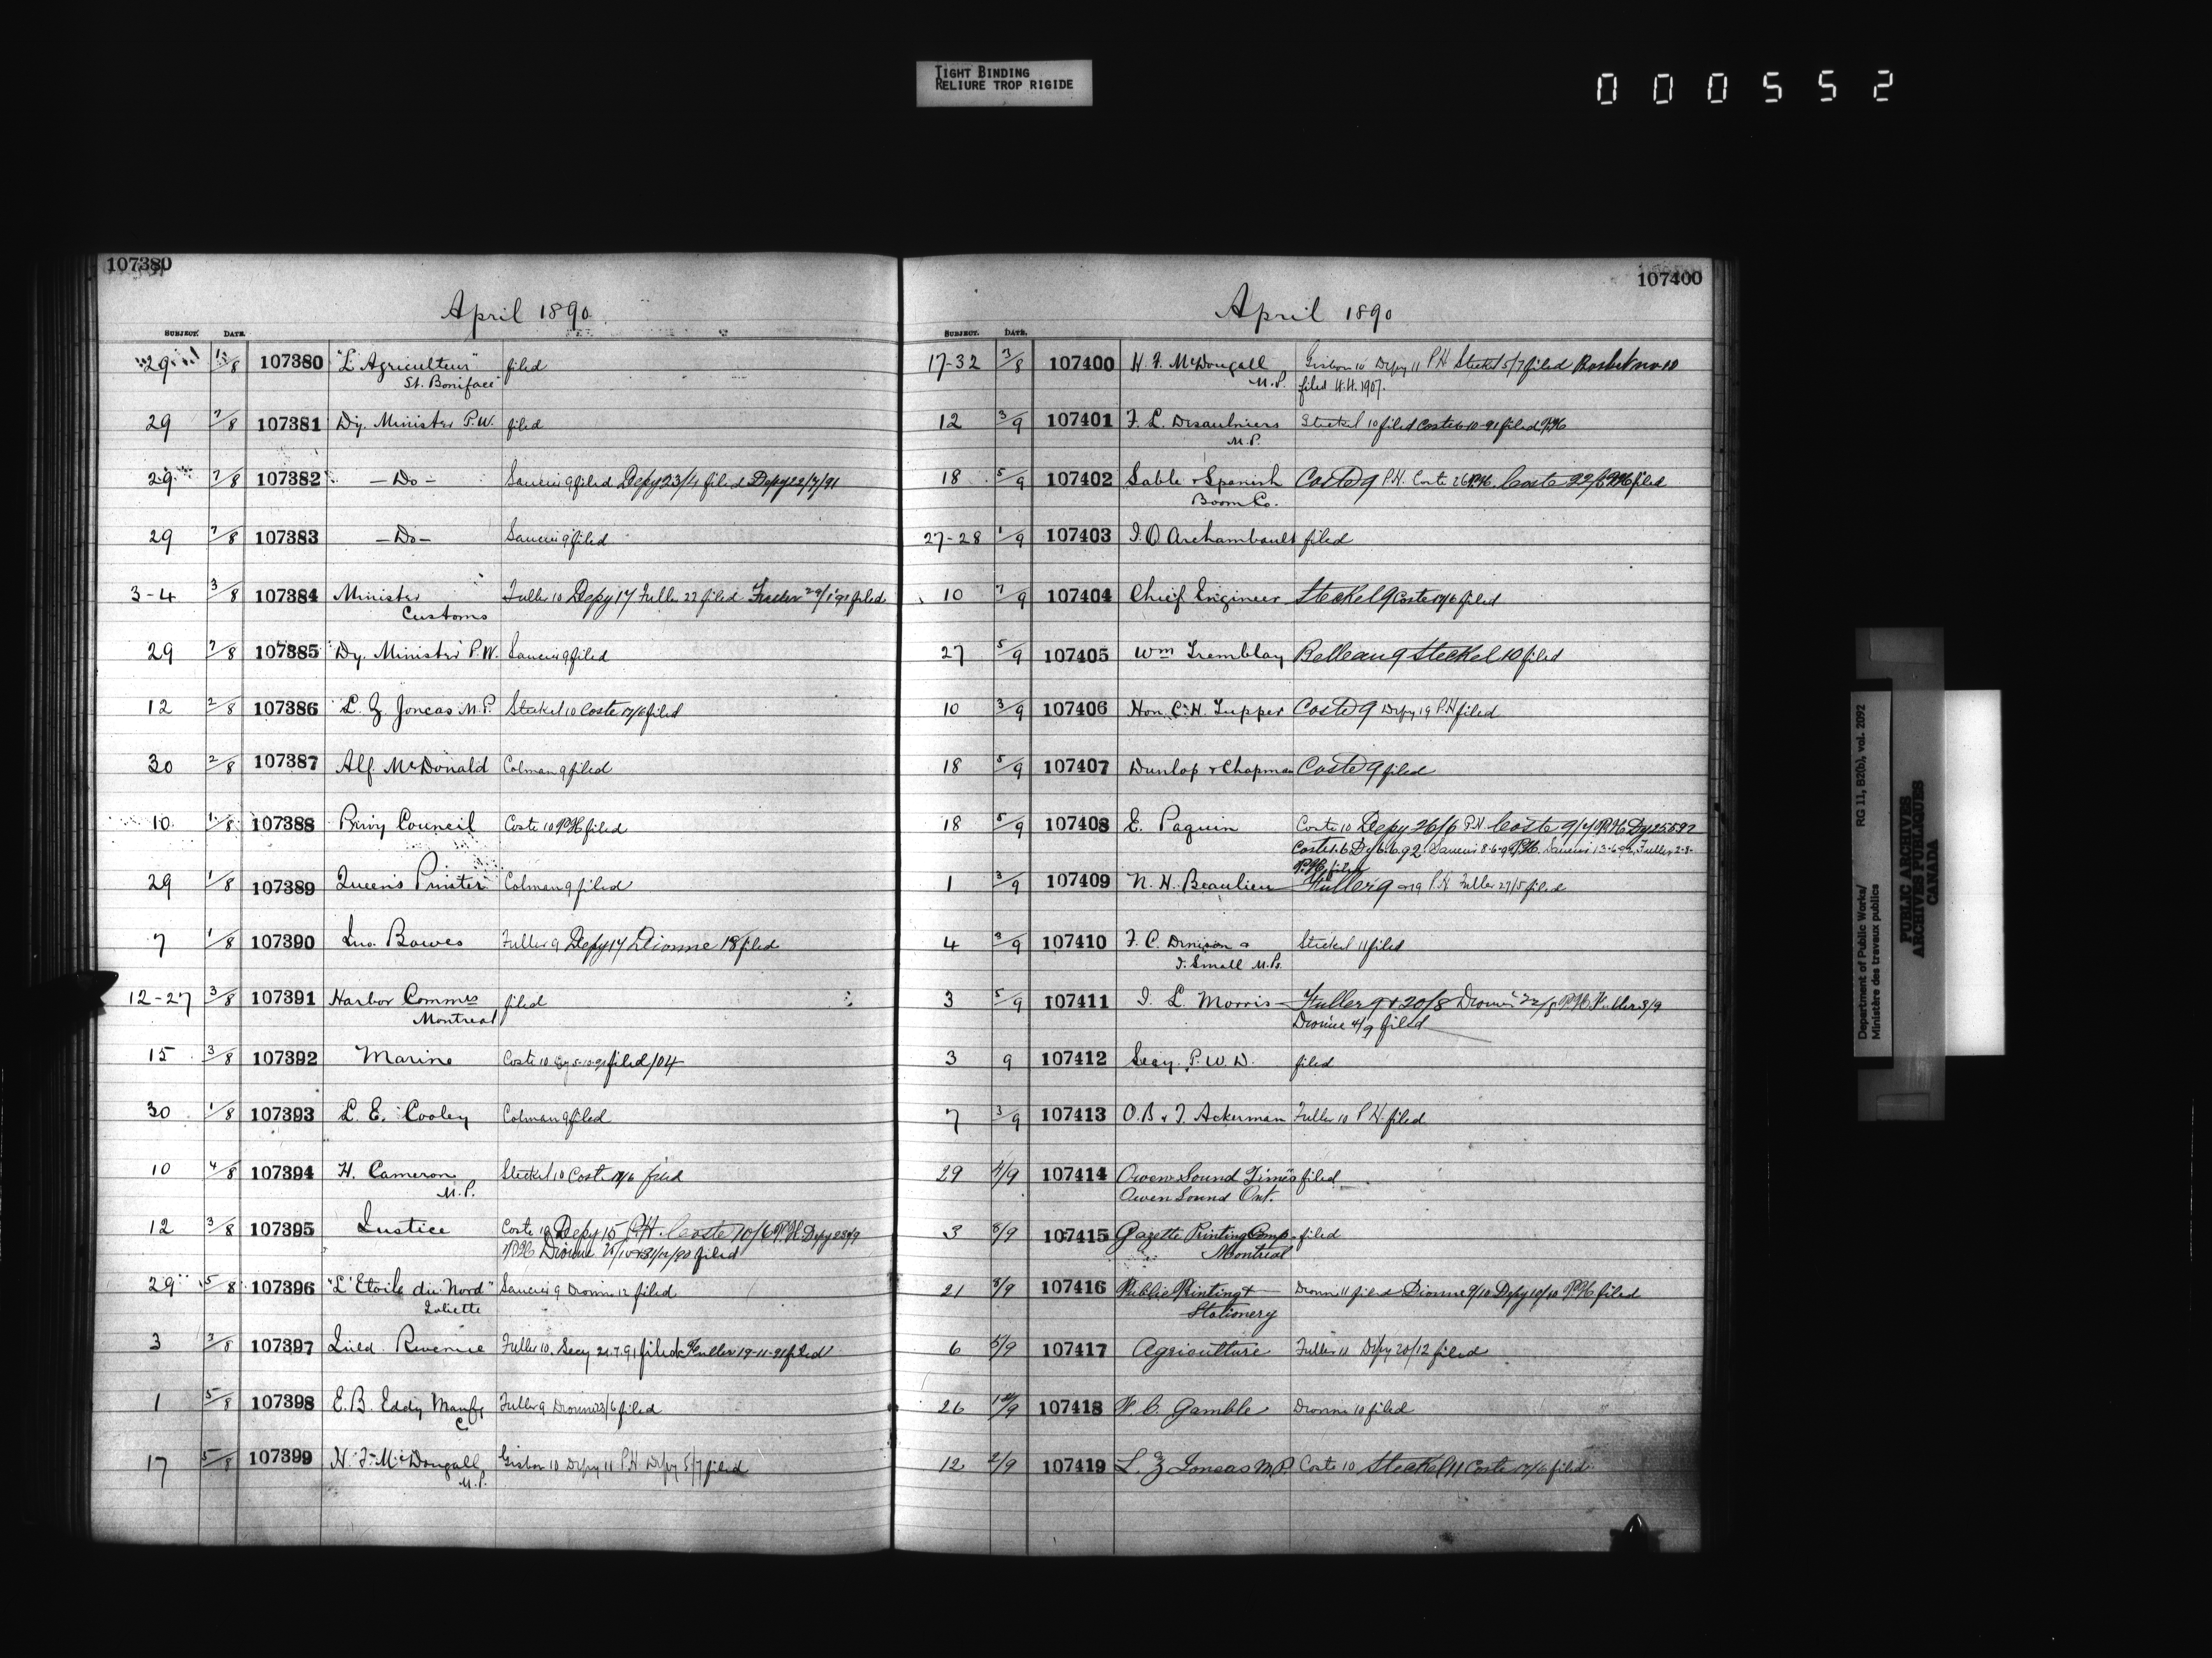 TIGHT BINDING
RELIURE TROP RIGIDE
000552
107380
April 1890
SUBJECT. DATE.
29 1/8 107380 "L'Agriculteur" filed
St. Boniface
29 7/8 107381 Dy. Minister P.W. filed
29 7/8 107382 - Do - Saucier 9 filed Depy 23/4 filed Depy 22/7/91
29 7/8 107383 - Do - Saucier 9 filed
3-4 3/8 107384 Minister Fuller 10 Depy 17 Fuller 22 filed Fuller filed
Customs
29 7/8 107385 Dy. Minister P.W. Saucier 9 filed
12 2/8 107386 L. Z. Joncas M.P. Steckel 10 Coste 17/6 filed
30 2/8 107387 Alf. McDonald Colman 9 filed
10 1/8 107388 Privy Council Coste 10 P.H filed
29 1/8 107389 Queen's Printer Colman 9 filed
7 1/8 107390 Jno. Bowes Fuller 9 Depy 17 Dionne 18 filed
12-27 3/8 107391 Harbor Commrs filed
Montreal
15 3/8 107392 Marine Coste 10 filed /04
30 1/8 107393 L. E. Cooley Colman 9 filed
10 4/8 107394 H. Cameron Steckel 10 Coste 17/6 filed
M.P.
12 3/8 107395 Justice Coste 10 Depy 15 P.H. Coste 10/6 P.H. Depy
P.H. Dionne filed
29 5/8 107396 "L'Etoile du Nord" Saucier 9 Dionne 12 filed
Joliette
3 3/8 107397 Inld. Revenue Fuller 10. Secy 21.7.91 filed Fuller 19-11-91 filed
1 5/8 107398 E. B. Eddy Manfg Fuller 9 Dionne 23/6 filed
C
17 5/8 107399 H. F. McDougall Gisbon 10 Depy 11 P.H. Depy 5/7 filed
M.P.
107400
April 1890
SUBJECT. DATE.
17-32 3/8 107400 H. F. McDougall Gisbon 10 Depy 11 P.H Steckel 5/7 filed
M.P. filed H.H. 1907.
12 3/9 107401 F. L. Desaulniers Steckel 10 filed Coste 6-10-91 filed P.H
M.P.
18 5/9 107402 Sable & Spanish Coste 9 P.H. Coste 26 P.H. Coste 22/6 P.H. filed
Boom Co.
27-28 1/9 107403 J. O Archambault filed
10 7/9 107404 Chief Engineer Steckel 9 Coste 17/6 filed
27 5/9 107405 Wm Tremblay Belleau 9 Steckel 10 filed
10 3/9 107406 Hon. C. H. Tupper Coste 9 Depy 19 P.H filed
18 5/9 107407 Dunlop & Chapman Coste 9 filed
18 5/9 107408 E. Paquin Coste 10 Depy 26/6 P.H. Coste 9/7 P.H. Dy 25.5.92
Coste 1.6 Dy 6.6.92 Saucier 8-6-92 P.H. Saucier 13-6-92 Fuller 2-8-
P.H. filed
1 3/9 107409 N. H. Beaulieu Fuller 9 & 19 P.H. Fuller 27/5 filed
4 3/9 107410 F. C. Denison & Steckel 11 filed
J. Small M.Ps.
3 5/9 107411 J. L. Morris Fuller 9 & 20/8 Dionne 22/8 P.H. Fuller 3/9
Dionne 4/9 filed
3 9 107412 Secy. P. W. D. filed
7 3/9 107413 O. B & J. Ackerman Fuller 10 P.H. filed
29 4/9 107414 Owen Sound Times filed
Owen Sound Ont.
3 8/9 107415 Gazette Printing Comp. filed
Montreal
21 8/9 107416 Public Printing & Dionne 11 filed Dionne 9/10 Depy 10/10 P.H. filed
Stationery
6 5/9 107417 Agriculture Fuller 11 Depy 20/12 filed
26 107418 F. C. Gamble Dionne 10 filed
12 2/9 107419 L. Z Joncas M.P. Coste 10 Steckel 11 Coste 17/6 filed
Department of Public Works/ RG 11, B2(b), vol. 2092
Ministère des travaux publics
PUBLIC ARCHIVES
ARCHIVES PUBLIQUES
CANADA